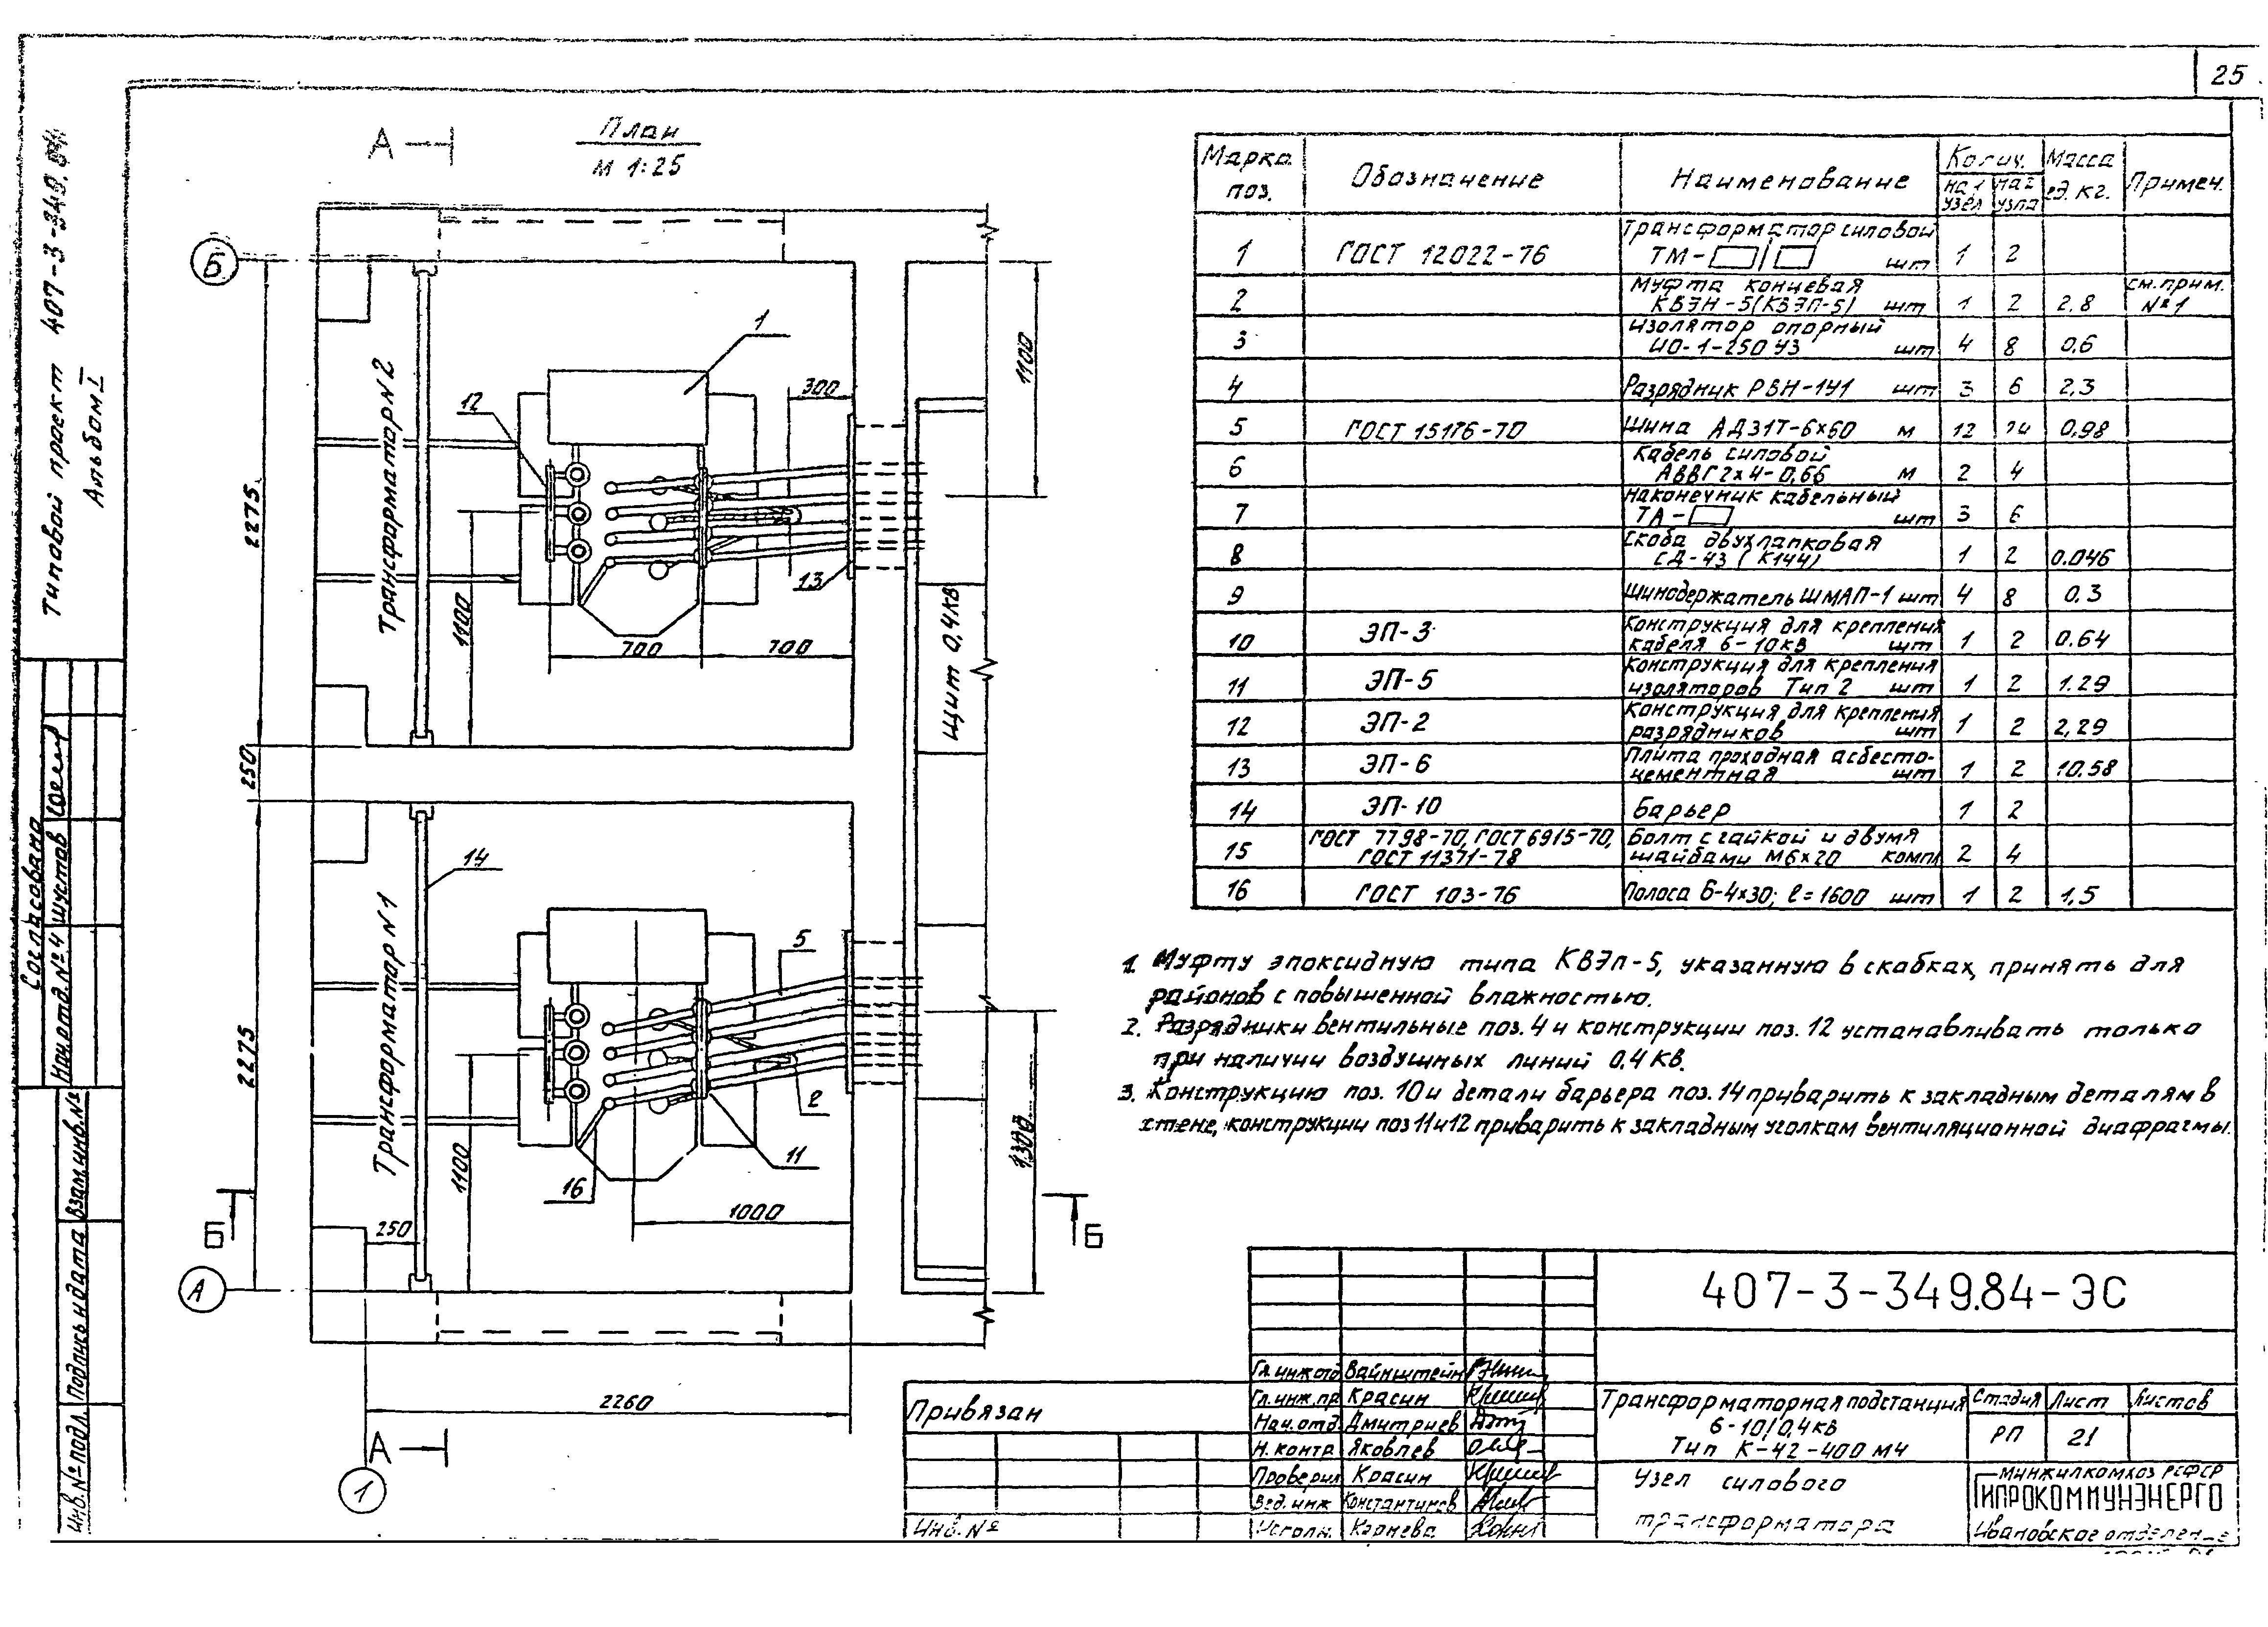 25
Типовой проект 407-3-349.84
Альбом I
План
М 1:25
А
Б
2275
250
2275
Трансформатор N2
Трансформатор N1
1
12
300
1100
13
1100
700
700
Щит 0,4кв
14
5
2
11
16
1100
1300
1000
250
Б
Б
А
2260
А
1
Марка поз.
Обозначение
Наименование
Колич.
на 1 узел
на 2 узла
Масса ед. кг.
Примеч.
1 ГОСТ 12022-76 Трансформатор силовой
ТМ- / шт 1 2
2 Муфта концевая см. прим.
КВЭН-5(КВЭП-5) шт 1 2 2,8 №1
3 Изолятор опорный
ИО-1-250 У3 шт 4 8 0,6
4 Разрядник РВН-1У1 шт 3 6 2,3
5 ГОСТ 15176-70 Шина АД31Т-6х60 м 12 24 0,98
6 Кабель силовой
АВВГ 2х4-0,66 м 2 4
7 Наконечник кабельный
ТА- шт 3 6
8 Скоба двухлапковая
СД-43 (К144) 1 2 0.046
9 Шинодержатель ШМАП-1 шт 4 8 0.3
10 ЭП-3 Конструкция для крепления
кабеля 6-10кв шт 1 2 0.64
11 ЭП-5 Конструкция для крепления
изоляторов Тип 2 шт 1 2 1.29
12 ЭП-2 Конструкция для крепления
разрядников шт 1 2 2,29
13 ЭП-6 Плита проходная асбесто-
цементная шт 1 2 10.58
14 ЭП-10 Барьер 1 2
15 ГОСТ 7798-70, ГОСТ 5915-70, Болт с гайкой и двумя
ГОСТ 11371-78 шайбами М6х20 компл 2 4
16 ГОСТ 103-76 Полоса Б-4х30; l=1600 шт 1 2 1,5
1. Муфту эпоксидную типа КВЭп-5, указанную в скобках, принять для
районов с повышенной влажностью.
2. Разрядники вентильные поз. 4 и конструкции поз. 12 устанавливать только
при наличии воздушных линий 0.4 кв.
3. Конструкцию поз. 10 и детали барьера поз. 14 приварить к закладным деталям в
стене, конструкции поз 11 и 12 приварить к закладным уголкам вентиляционной диафрагмы.
Согласовано
Нач. отд. №4 Шустов
Взам.инв.№
Подпись и дата
Инв.№ подл.
407-3-349.84-ЭС
Гл. инж отд Вайнштейн
Гл. инж. пр. Красин
Нач. отд. Дмитриев
Н. контр Яковлев
Проверил Красин
Вед. инж Константинов
Исполн. Корнева
Привязан
Инв. №
Трансформаторная подстанция
6-10/0,4кв
Тип К-42-400 М4
Стадия Лист Листов
РП 21
Узел силового
трансформатора
Минжилкомхоз РСФСР
ГИПРОКОММУНЭНЕРГО
Ивановское отделение